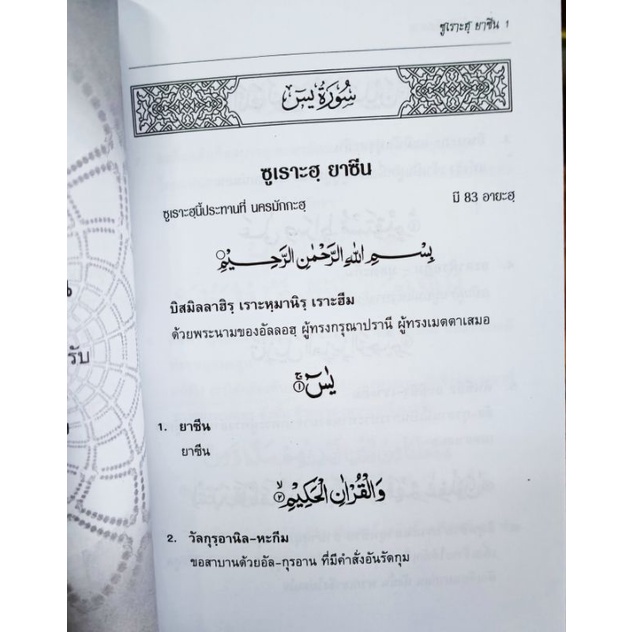 ซูเราะฮฺ ยาซีน 1
سُورَةُ يسٓ
ซูเราะฮฺ ยาซีน
ซูเราะฮฺนี้ประทานที่ นครมักกะฮฺ มี 83 อายะฮฺ
بِسْمِ اللهِ الرَّحْمٰنِ الرَّحِيْمِ
บิสมิลลาฮิรฺ เราะหฺมานิรฺ เราะฮีม
ด้วยพระนามของอัลลอฮฺ ผู้ทรงกรุณาปรานี ผู้ทรงเมตตาเสมอ
يٰسٓ ۚ ١
1. ยาซีน
ยาซีน
وَالْقُرْاٰنِ الْحَكِيْمِ ۙ ٢
2. วัลกุรฺอานิล-หะกีม
ขอสาบานด้วยอัล-กุรอาน ที่มีคำสั่งอันรัดกุม
น
รับ